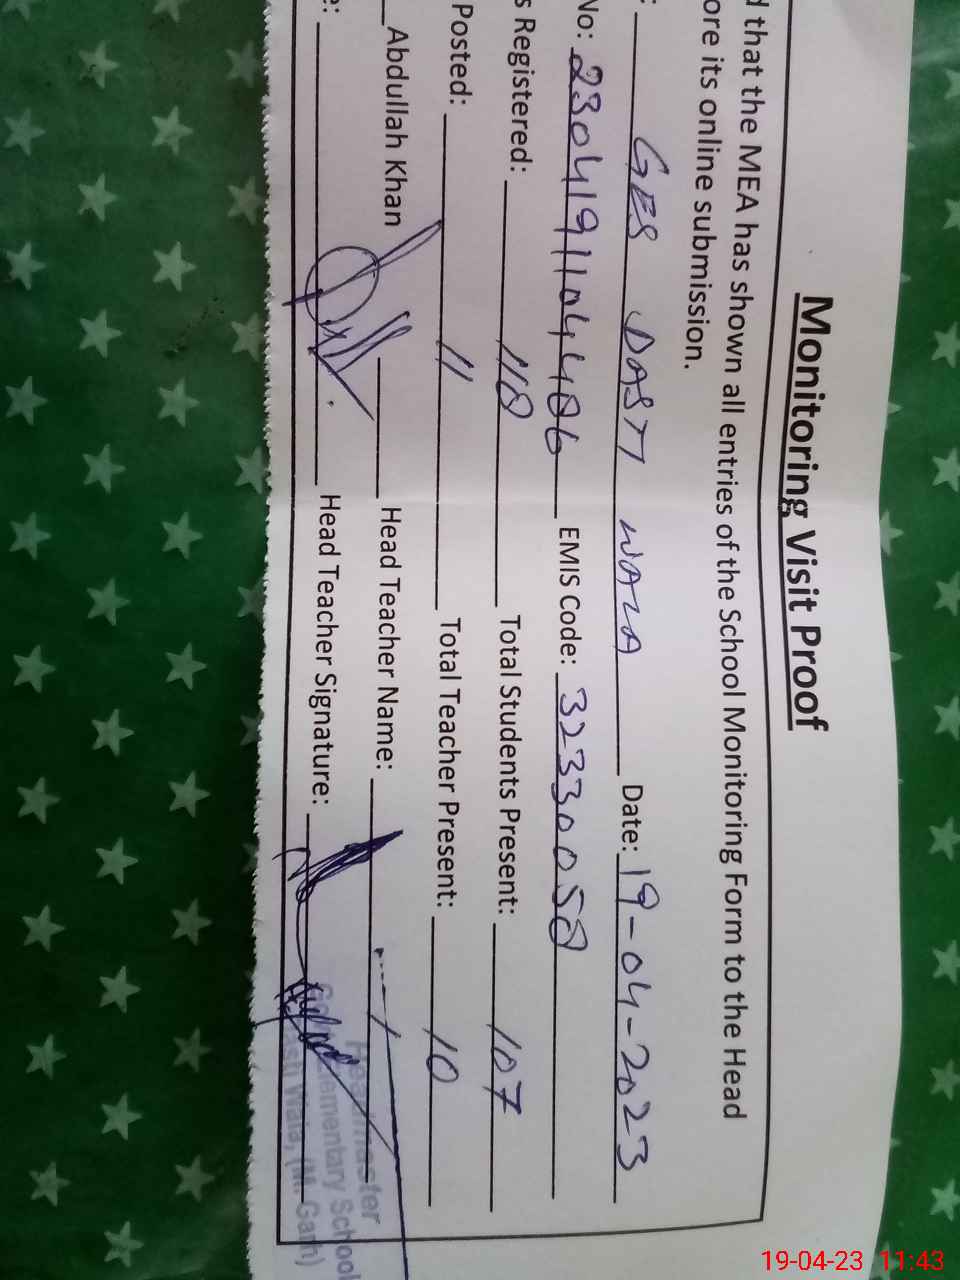 Monitoring Visit Proof
d that the MEA has shown all entries of the School Monitoring Form to the Head
ore its online submission.
: GES DASTI WALA Date: 19-04-2023
No: 23041911044406 EMIS Code: 32330058
s Registered: 118 Total Students Present: 107
Posted: 11 Total Teacher Present: 10
Abdullah Khan Head Teacher Name:
e: Head Teacher Signature:
Headmaster
Elementary School
Wala, (M. Garh)
19-04-23 11:43